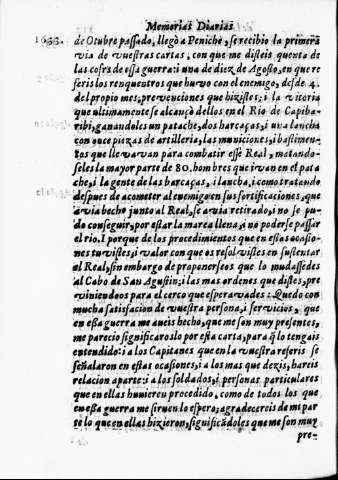 Memorias Diarias
1635.
de Otubre passado, llegò a Peniche, se recibio la primera
via de vuestras cartas, con que me disteis quenta de
las cosas de essa guerra: i una de diez de Agosto, en que re
feris los renquentros que huvo con el enemigo, desde 4.
del propio mes, prevenciones que hizistes; i la vitoria
que ultimamente se alcançò dellos en el Rio de Capiba-
ribi, ganandoles un patache, dos barcaças, i una lancha
con onze piezas de artilleria, las municiones, i bastimen-
tos que llevavan para combatir esse Real, matando-
seles la mayor parte de 80. hombres que ivan en el pata
che, i la gente de las barcaças, i lancha, i como tratando
despues de acometer al enemigo en sus fortificaciones, que
avia hecho junto al Real, se avia retirado, i no se pu-
do conseguir, por estar la marea llena, i no poderse passar
el rio. I porque de los procedimientos que en estas ocasio-
nes tuvistes, i valor con que os resolvistes en sustentar
el Real, sin embargo de proponerseos que lo mudassedes
al Cabo de San Agustin: i las mas ordenes que distes, pre
viniendoos para el cerco que esperavades: Quedo con
mucha satisfacion de vuestra persona, i servicios, que
en essa guerra me aueis hecho, que me son muy presentes,
me parecio significaroslo por esta carta, para q̃ lo tengais
entendido: i a los Capitanes que en la vuestra referis se
señalaron en estas ocasiones; i a los mas que dezis, hareis
relacion aparte: i a los soldados, i personas particulares
que en ellas huvieren procedido, como de todos los que
en essa guerra me siruen lo espero; agradecereis de mi par
te lo que en ellas hizieron, significãdoles que me son muy
pre-